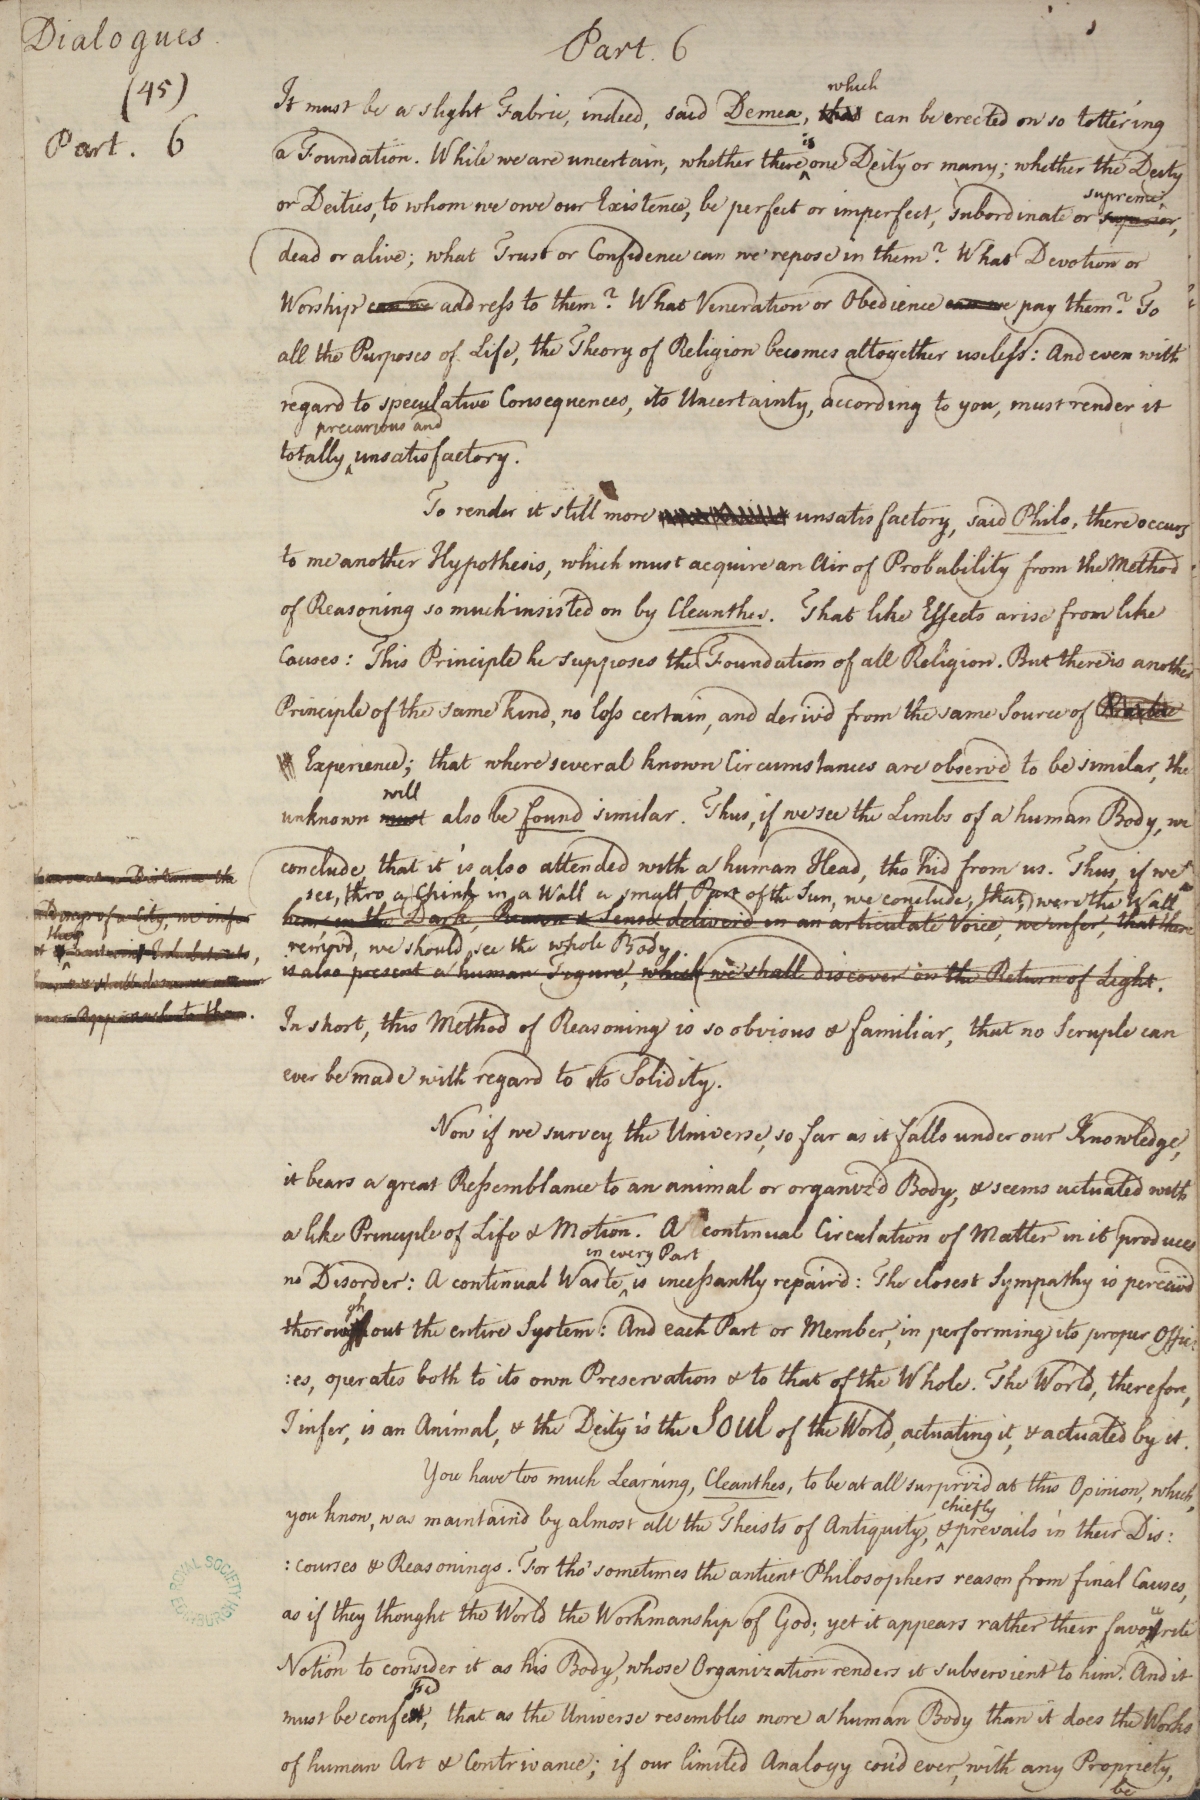 Dialogues.
Part. 6
(45)
Part. 6
which
It must be a slight Fabric, indeed, said Demea, that can be erected on so tottering
is
a Foundation. While we are uncertain, whether there one Deity or many; whether the Deity
supreme,
or Deities, to whom we owe our Existence, be perfect or imperfect, subordinate or superior,
dead or alive; what Trust or Confidence can we repose in them? What Devotion or
Worship can we address to them? What Veneration or Obedience can we pay them? To
all the Purposes of Life, the Theory of Religion becomes altogether useless: And even with
regard to speculative Consequences, its Uncertainty, according to you, must render it
precarious and
totally unsatisfactory.
To render it still more unsatisfactory, said Philo, there occurs
to me another Hypothesis, which must acquire an Air of Probability from the Method
of Reasoning so much insisted on by Cleanthes. That like Effects arise from like
Causes: This Principle he supposes the Foundation of all Religion. But there is another
Principle of the same kind, no less certain, and deriv'd from the same Source of
Experience; that where several known Circumstances are observd to be similar, the
will
unknown must also be found similar. Thus, if we see the Limbs of a human Body, we
conclude, that it is also attended with a human Head, tho hid from us. Thus, if we
see, thro a Chink in a Wall a small Part of the Sun, we conclude, that, were the Wall
hear, in the Dark, Reason & Sense deliverd in an articulate Voice, we infer, that there
remov'd, we should see the whole Body
is also present a human Figure, which we shall discover on the Return of Light.
at a Distance the
Smoap of a City, we infer
Inhabitants,
Approach to them.
In short, this Method of Reasoning is so obvious & familiar, that no Scruple can
ever be made with regard to its Solidity.
Now if we survey the Universe, so far as it falls under our Knowledge,
it bears a great Ressemblance to an animal or organiz'd Body, & seems actuated with
a like Principle of Life & Motion. A continual Circulation of Matter in it produces
in every Part
no Disorder: A continual Waste is incessantly repair'd: The closest Sympathy is perceiv'd
gh
thoroughout the entire System: And each Part or Member, in performing its proper Offic:
:es, operates both to its own Preservation & to that of the Whole. The World, therefore,
I infer, is an Animal, & the Deity is the Soul of the World, actuating it, & actuated by it.
You have too much Learning, Cleanthes, to be at all surpriz'd at this Opinion, which,
chiefly
you know, was maintaind by almost all the Theists of Antiquity, & prevails in their Dis:
:courses & Reasonings. For tho' sometimes the antient Philosophers reason from final Causes,
as if they thought the World the Workmanship of God; yet it appears rather their favourite
Notion to consider it as his Body, whose Organization renders it subservient to him. And it
must be confest, that as the Universe resembles more a human Body than it does the Works
of human Art & Contrivance; if our limited Analogy cou'd ever, with any Propriety,
be
ROYAL SOCIETY
EDINBURGH